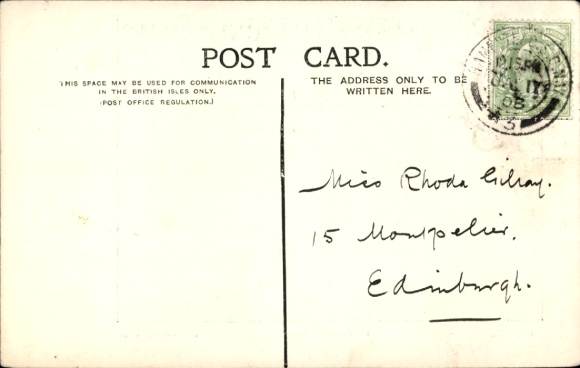 POST CARD.
THIS SPACE MAY BE USED FOR COMMUNICATION
IN THE BRITISH ISLES ONLY.
(POST OFFICE REGULATION.)
THE ADDRESS ONLY TO BE
WRITTEN HERE.
12.15 PM
JUL 11
08
Miss Rhoda Gilray.
15 Montpelier.
Edinburgh.